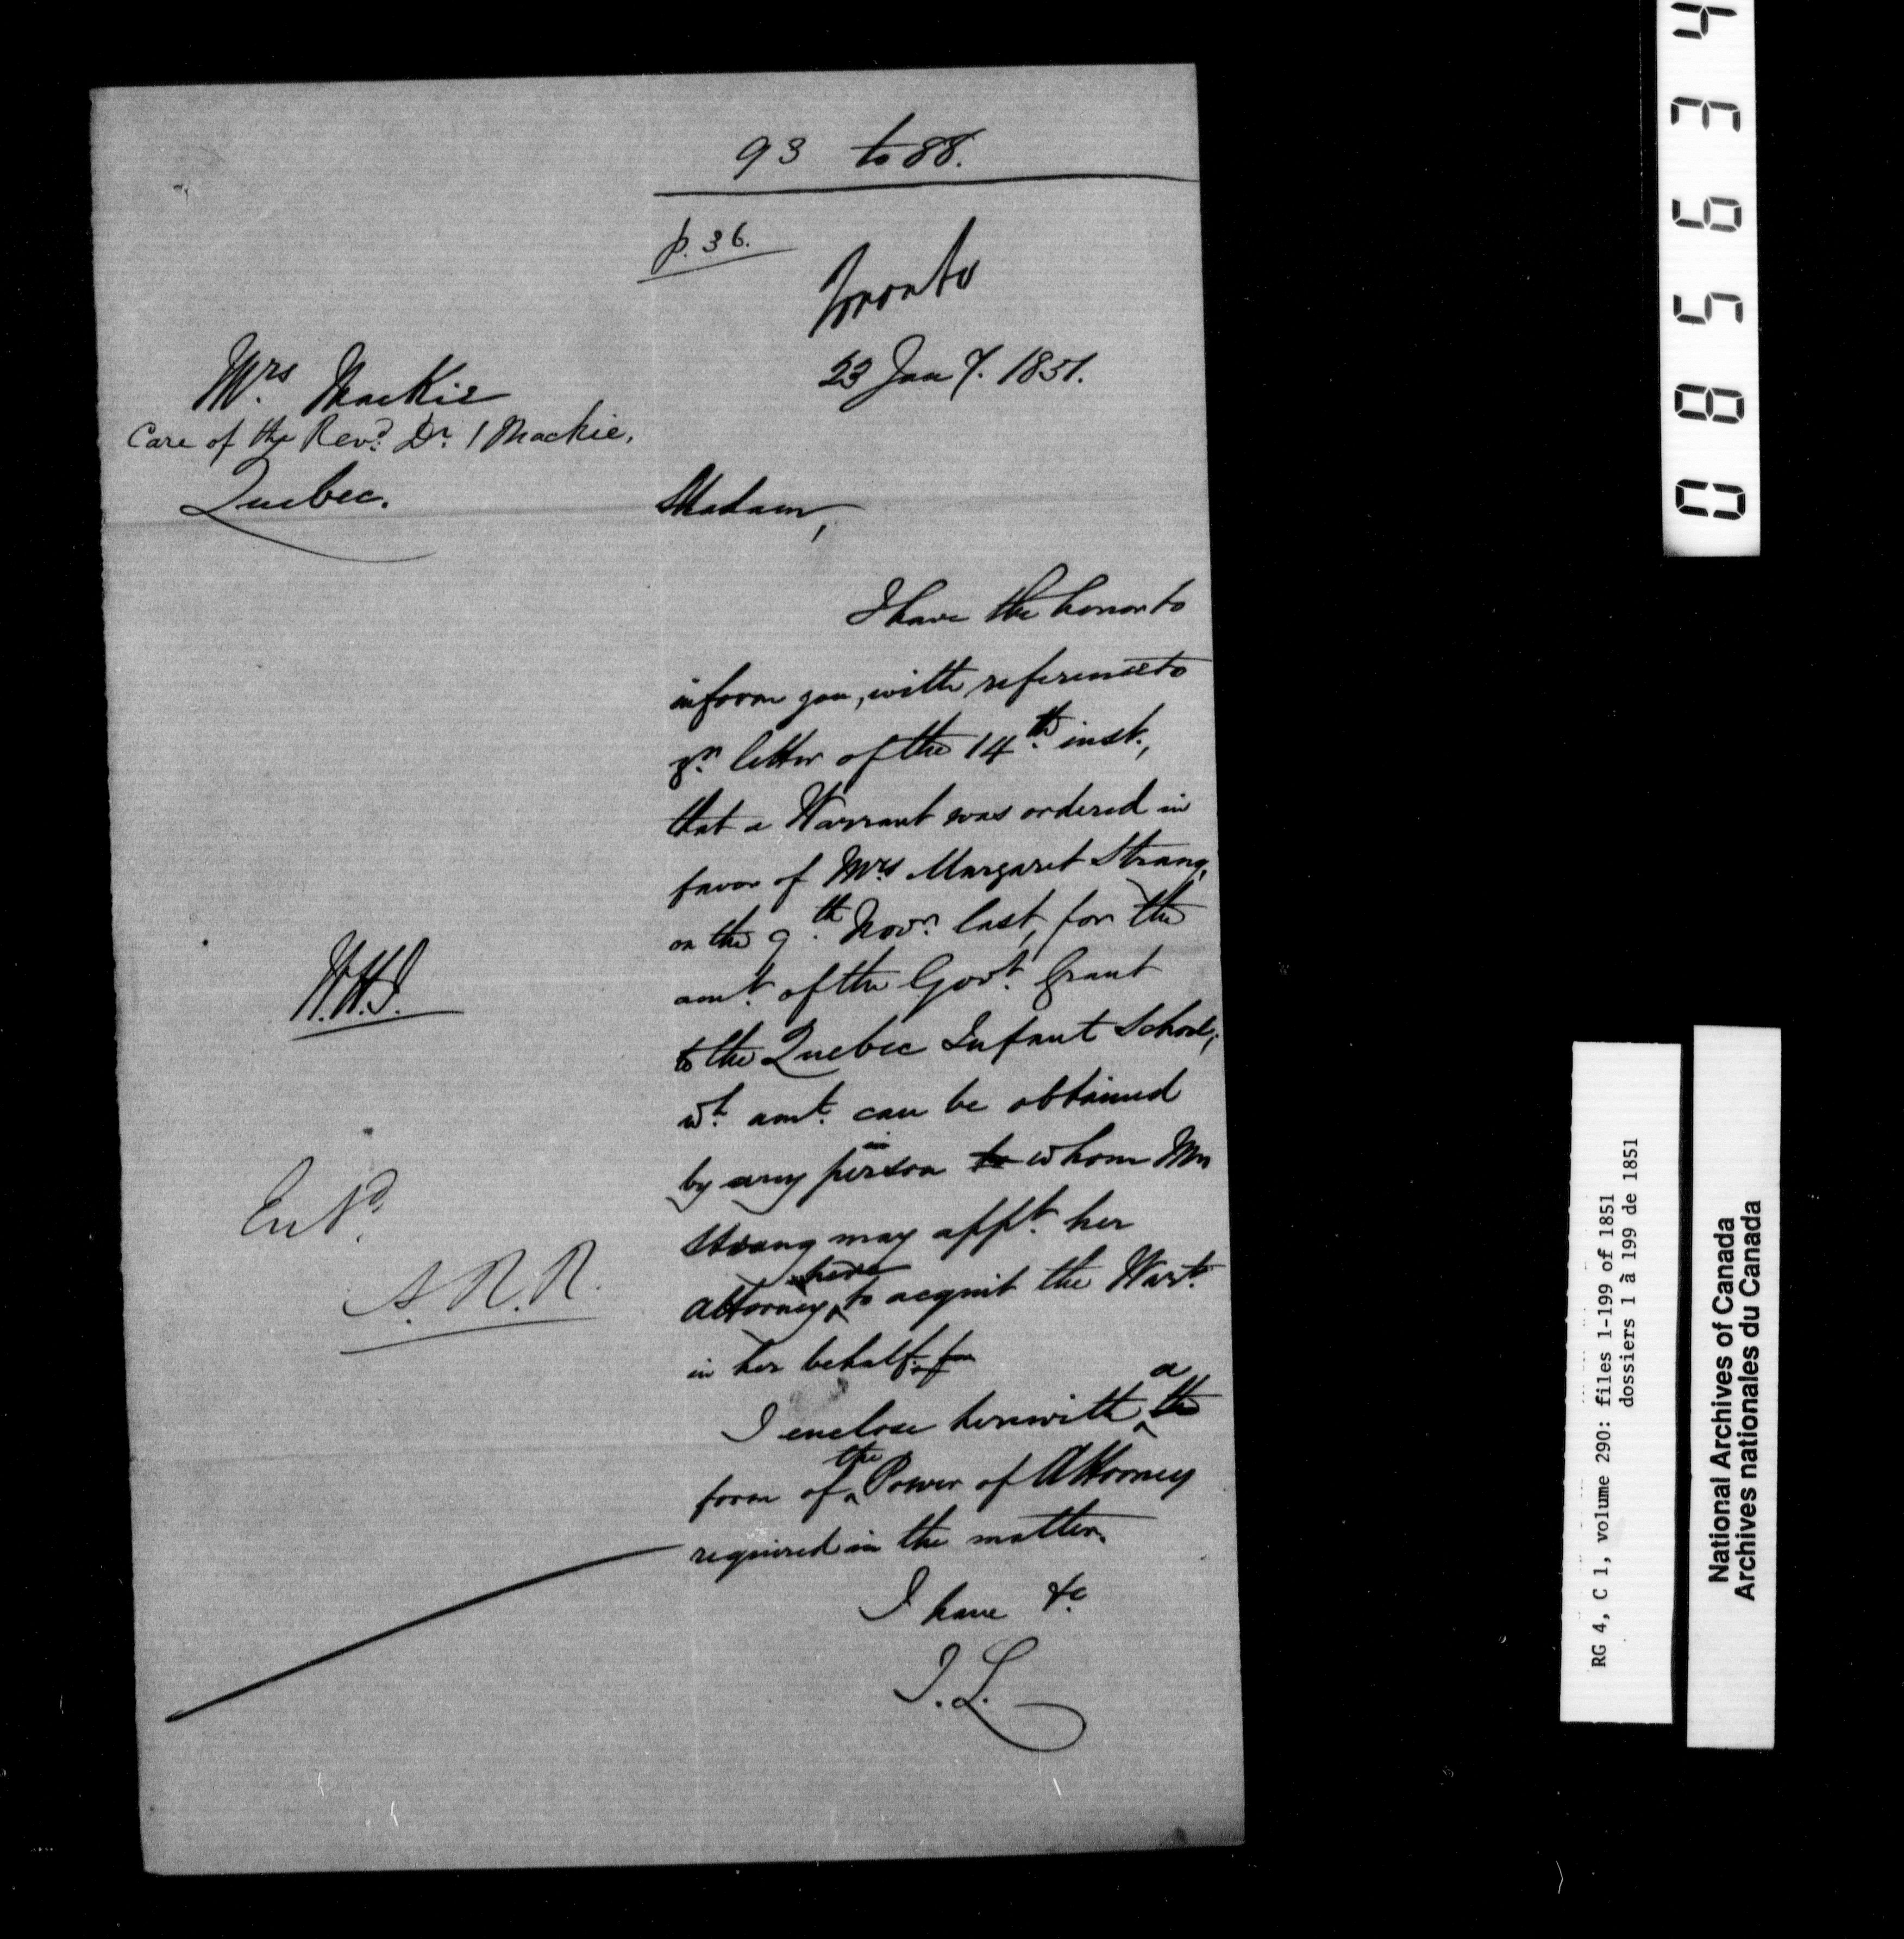 93 to 88.
p. 36.
Toronto
23 Jany. 1851.
Mrs. Mackie
Care of the Revd. Dr. Mackie,
Quebec.
Madam,
I have the honor to
inform you, with reference to
yr. letter of the 14th. inst.,
that a Warrant was ordered in
favor of Mrs Margaret Strang,
on the 9th. Novr. last, for the
amt. of the Govt. Grant
to the Quebec Infant School;
wh. amt. can be obtained
by any person to whom Mrs
Strang may appt. her
attorney here to acquit the Warrt.
in her behalf.
I enclose herewith a the
form of the Power of Attorney
required in the matter.
I have &c
J. L.
W.H.J.
Entd.
A.R.R.
085634
RG 4, C 1, volume 290: files 1-199 of 1851
dossiers 1 à 199 de 1851
National Archives of Canada
Archives nationales du Canada